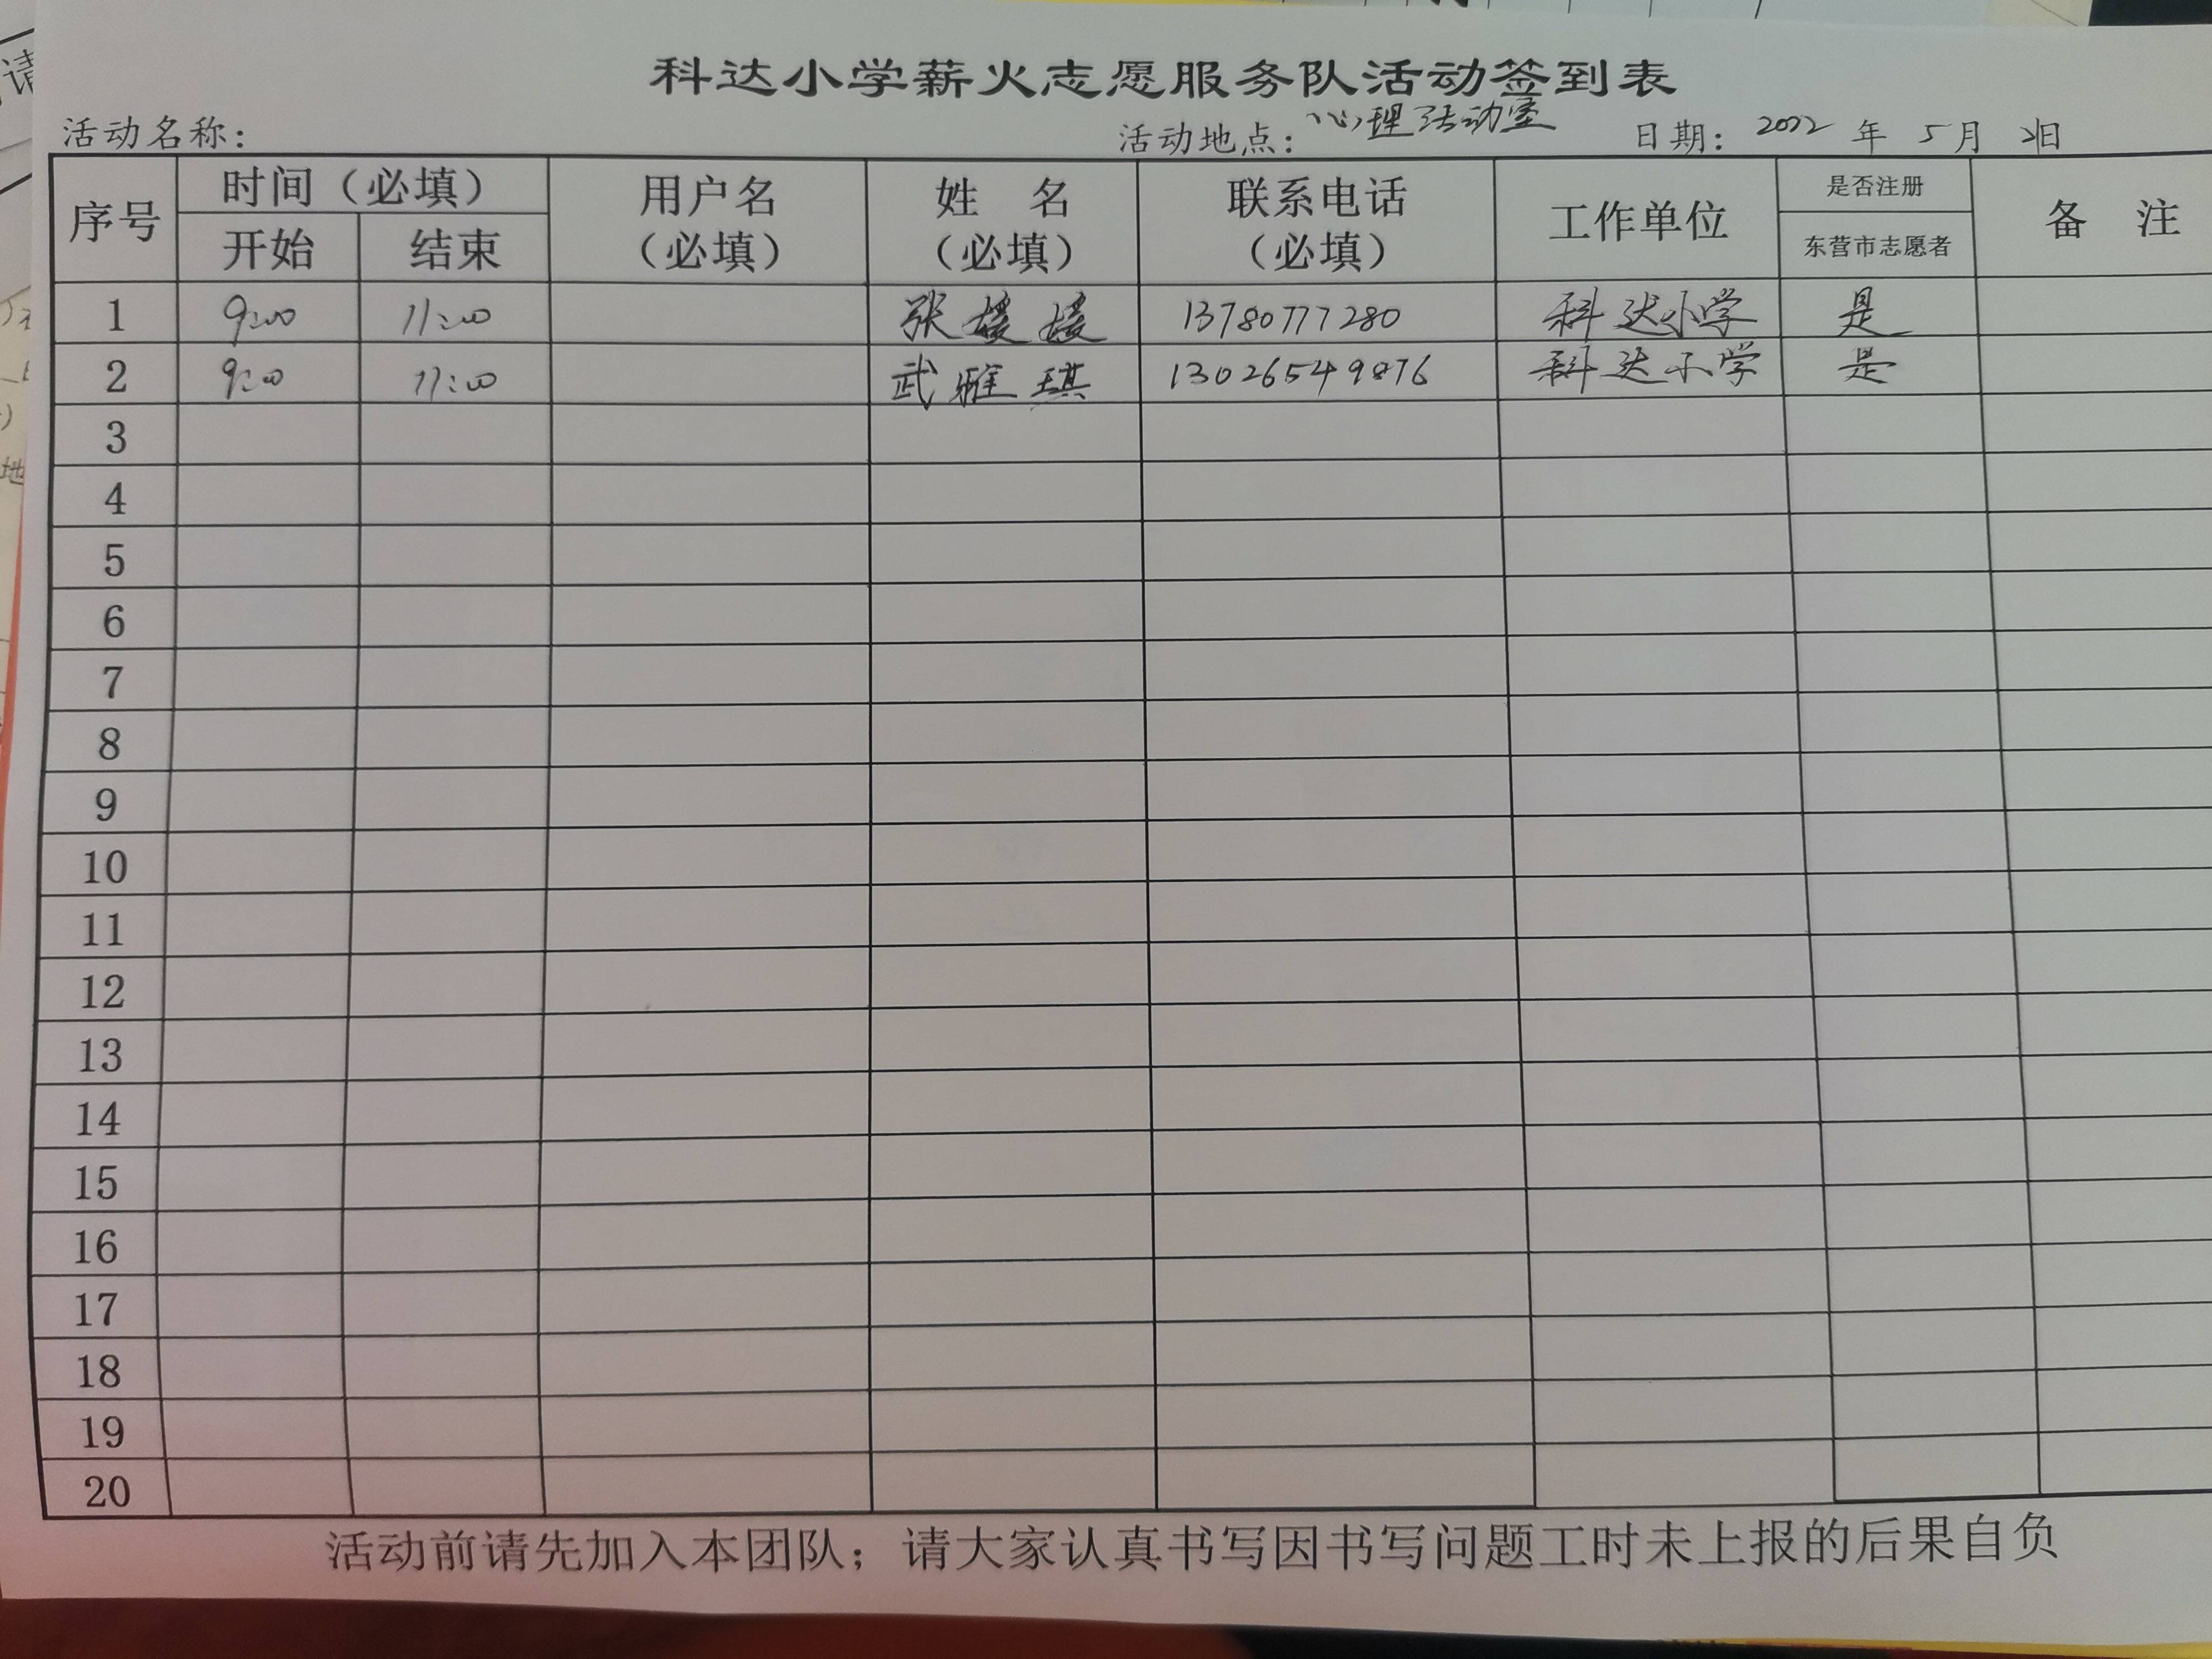 科达小学薪火志愿服务队活动签到表
活动名称： 活动地点：心理活动室 日期：2022年 5月 日
序号 时间（必填） 用户名（必填） 姓 名（必填） 联系电话（必填） 工作单位 是否注册 备 注
开始 结束 东营市志愿者
1 9:00 11:00 张媛媛 13780777280 科达小学 是
2 9:00 11:00 武雅琪 13026549876 科达小学 是
3
4
5
6
7
8
9
10
11
12
13
14
15
16
17
18
19
20
活动前请先加入本团队；请大家认真书写因书写问题工时未上报的后果自负